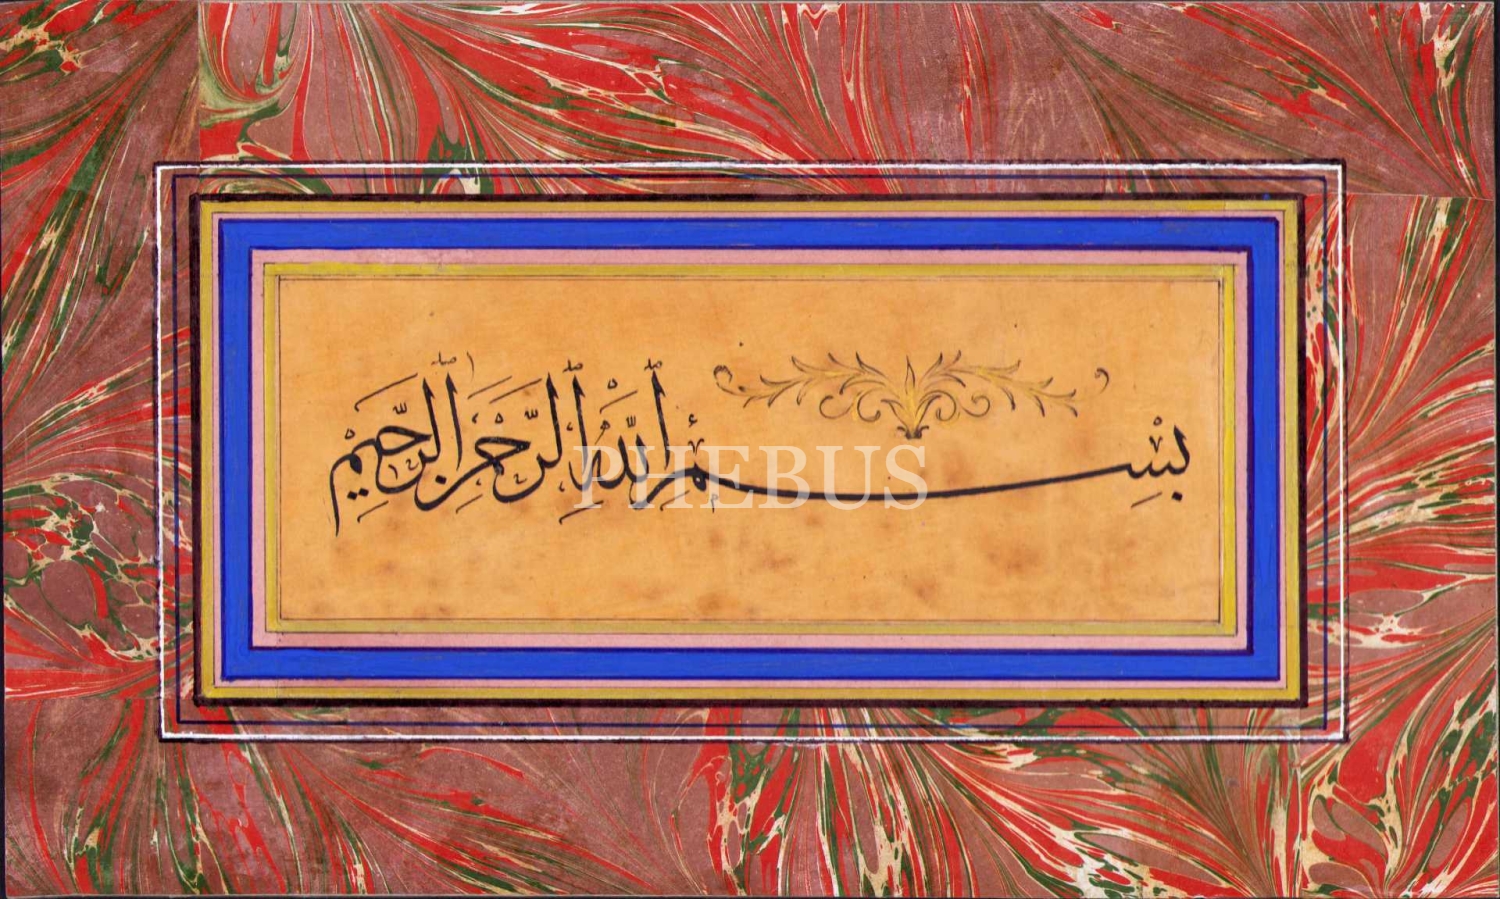 بِسْمِ اللّٰهِ الرَّحْمٰنِ الرَّحِيمِ
PHEBUS